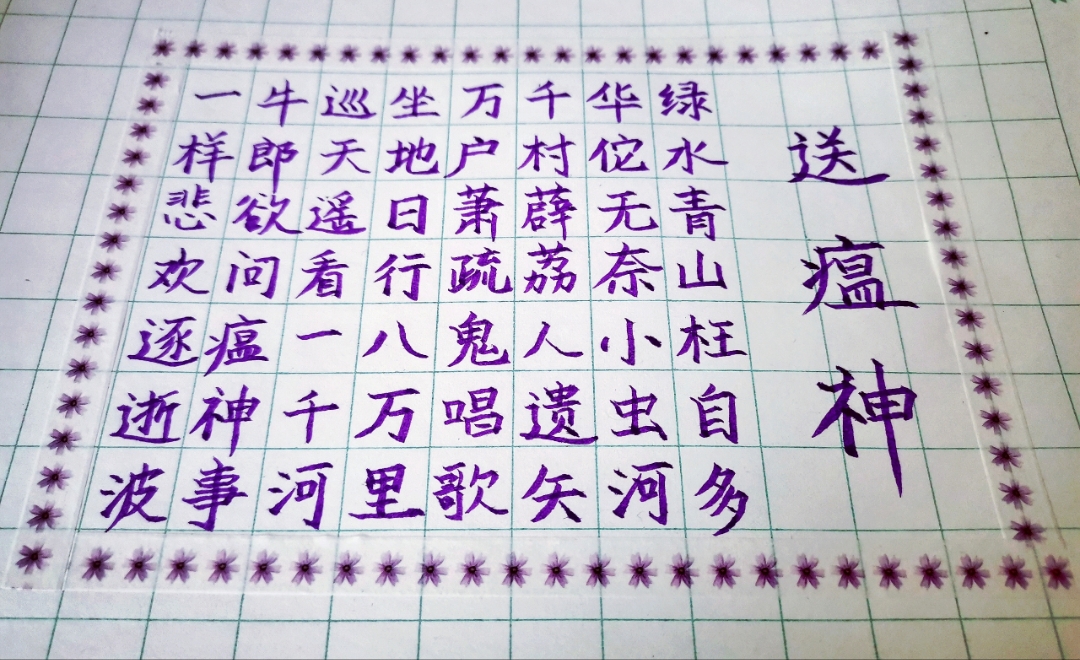 送瘟神
绿水青山枉自多
华佗无奈小虫河
千村薜荔人遗矢
万户萧疏鬼唱歌
坐地日行八万里
巡天遥看一千河
牛郎欲问瘟神事
一样悲欢逐逝波